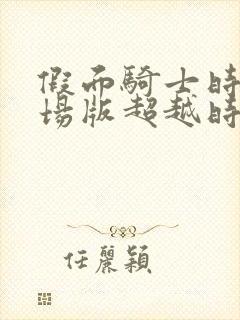 假面騎士時
場版超越時
任麗穎